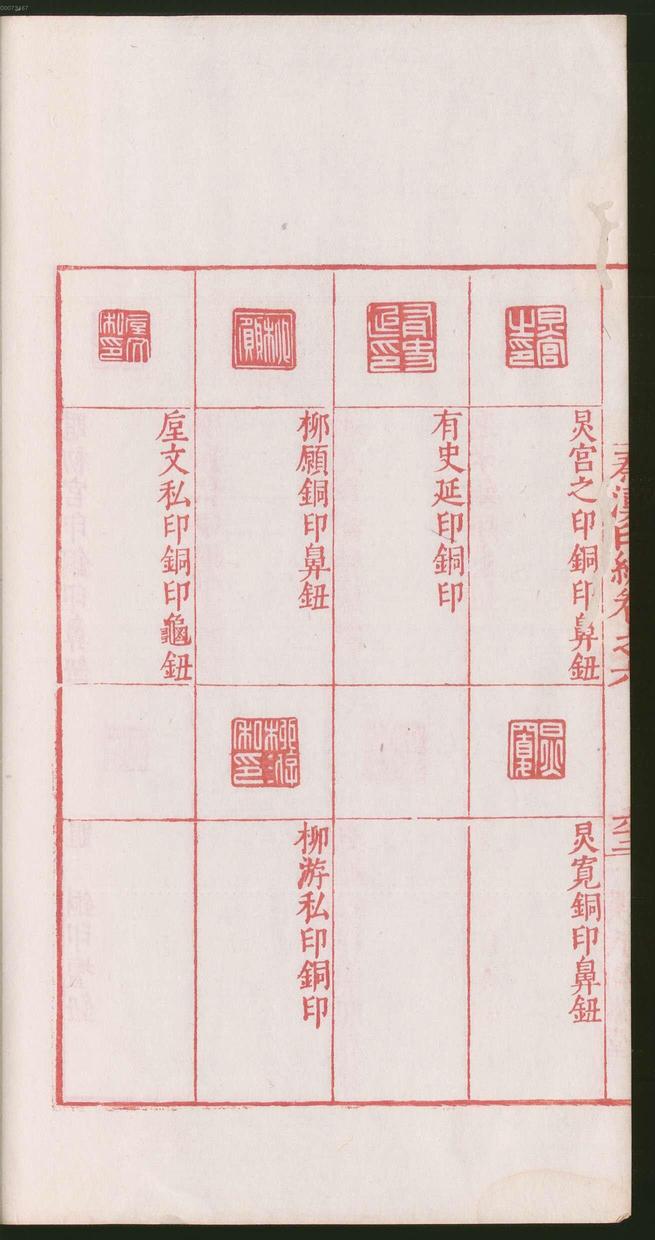 00073467
秦漢印統卷之六
炅宮之印銅印鼻鈕
炅寬銅印鼻鈕
有史延印銅印
柳願銅印鼻鈕
柳游私印銅印
垕文私印銅印龜鈕